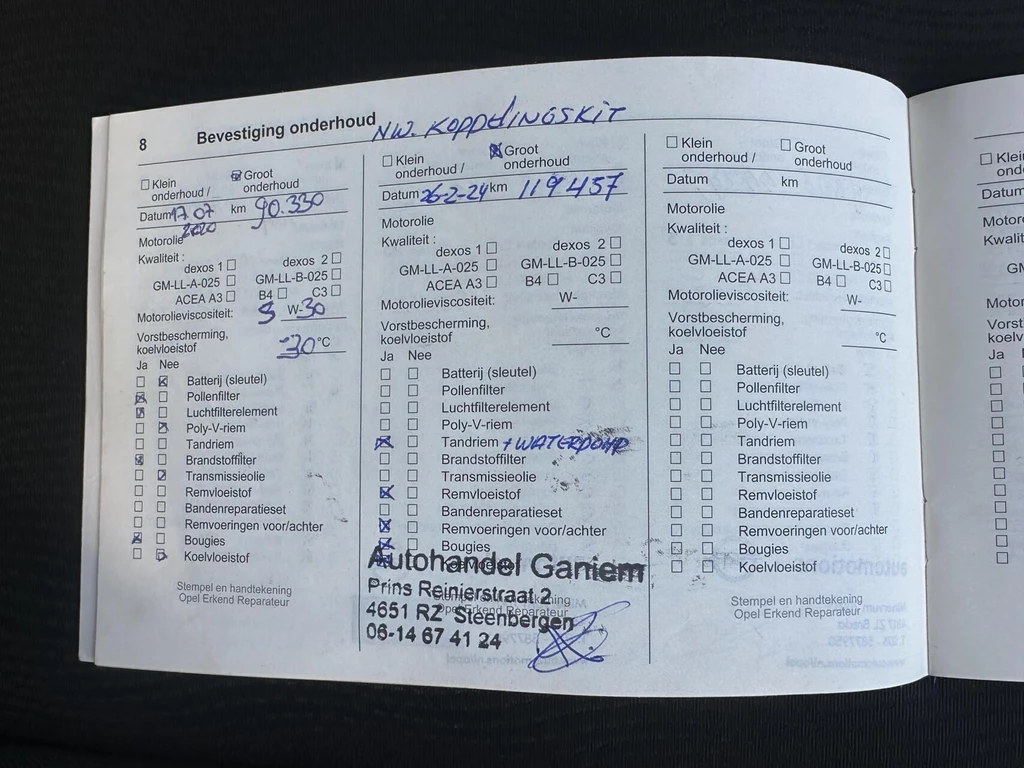 8 Bevestiging onderhoud NW. KOPPELINGSKIT
Klein onderhoud / Groot onderhoud
Datum 17.07 2020 km 90.330
Motorolie
Kwaliteit :
dexos 1 dexos 2
GM-LL-A-025 GM-LL-B-025
ACEA A3 B4 C3
Motorolieviscositeit: 5 W-30
Vorstbescherming,
koelvloeistof -30 °C
Ja Nee
Batterij (sleutel)
Pollenfilter
Luchtfilterelement
Poly-V-riem
Tandriem
Brandstoffilter
Transmissieolie
Remvloeistof
Bandenreparatieset
Remvoeringen voor/achter
Bougies
Koelvloeistof
Stempel en handtekening
Opel Erkend Reparateur
Klein onderhoud / Groot onderhoud
Datum 26-2-24 km 119457
Motorolie
Kwaliteit :
dexos 1 dexos 2
GM-LL-A-025 GM-LL-B-025
ACEA A3 B4 C3
Motorolieviscositeit: W-
Vorstbescherming,
koelvloeistof °C
Ja Nee
Batterij (sleutel)
Pollenfilter
Luchtfilterelement
Poly-V-riem
Tandriem + WATERPOMP
Brandstoffilter
Transmissieolie
Remvloeistof
Bandenreparatieset
Remvoeringen voor/achter
Bougies
Koelvloeistof
Autohandel Ganiem
Prins Reinierstraat 2
Stempel en handtekening
4651 RZ Steenbergen
Opel Erkend Reparateur
06-14 67 41 24
Klein onderhoud / Groot onderhoud
Datum km
Motorolie
Kwaliteit :
dexos 1 dexos 2
GM-LL-A-025 GM-LL-B-025
ACEA A3 B4 C3
Motorolieviscositeit: W-
Vorstbescherming,
koelvloeistof °C
Ja Nee
Batterij (sleutel)
Pollenfilter
Luchtfilterelement
Poly-V-riem
Tandriem
Brandstoffilter
Transmissieolie
Remvloeistof
Bandenreparatieset
Remvoeringen voor/achter
Bougies
Koelvloeistof
Stempel en handtekening
Opel Erkend Reparateur